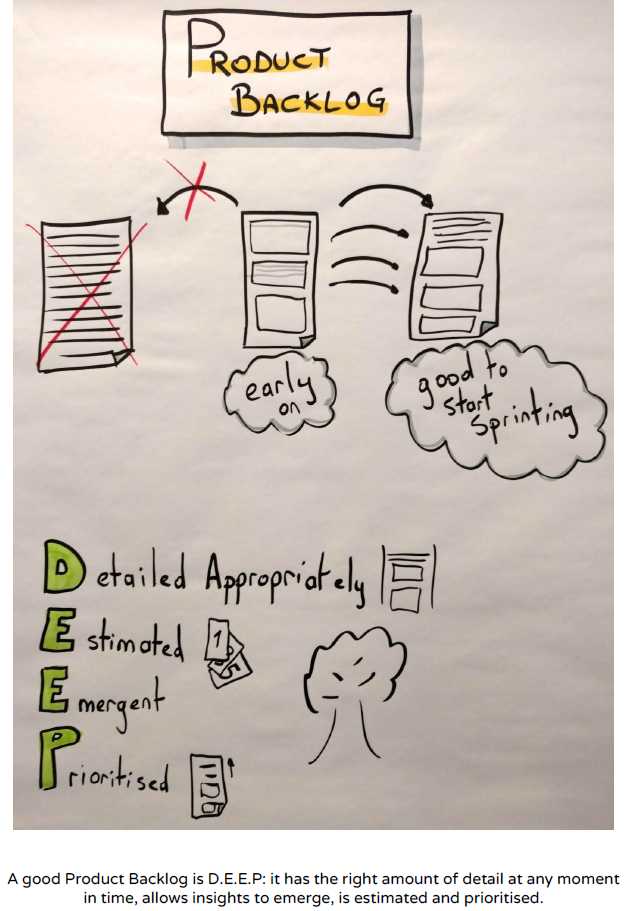 PRODUCT
BACKLOG
early
on
good to
start
sprinting
Detailed Appropriately
Estimated
1
5
Emergent
Prioritised
A good Product Backlog is D.E.E.P: it has the right amount of detail at any moment
in time, allows insights to emerge, is estimated and prioritised.